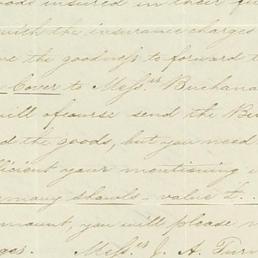 oods insured in their
with the insurance charges
ve the goodness to forward t
Cover to Mess.rs Buchana
will ofcourse send the
d the goods, but you need
ficient your mentioning
many shawls - value £..
mount, you will please
ges. Mess.rs J. A. Turn